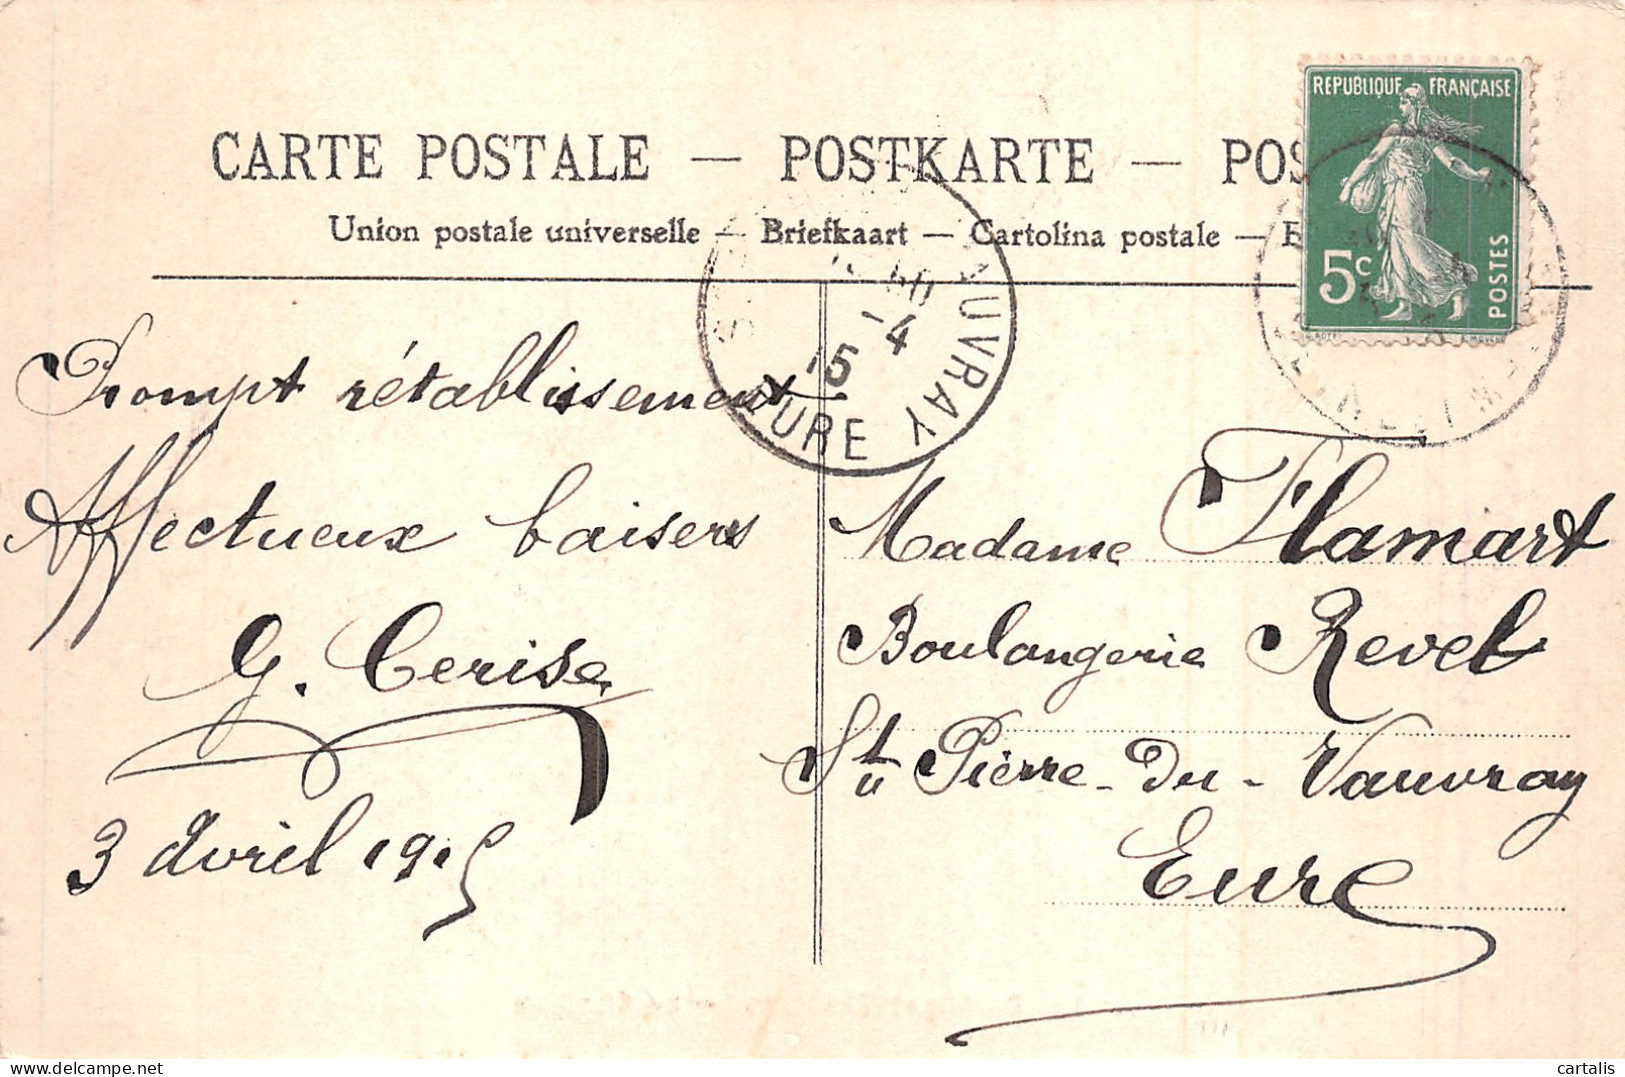 CARTE POSTALE — POSTKARTE — POS
Union postale universelle — Briefkaart — Cartolina postale —
REPUBLIQUE FRANÇAISE
5c
POSTES
AUVRAY
EURE
-4
15
Prompt rétablissement
Affectueux baisers
G. Cerise
3 Avril 1915
Madame Flamart
Boulangerie Revel
St Pierre-du-Vauvray
Eure
cartalis
delcampe.net